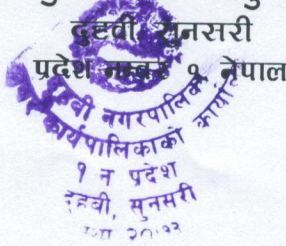 दुहवी, सुनसरी
प्रदेश नम्बर १ नेपाल
दुहवी नगरपालिका
नगर कार्यपालिकाको कार्यालय
१ न प्रदेश
दुहवी, सुनसरी
२०७३